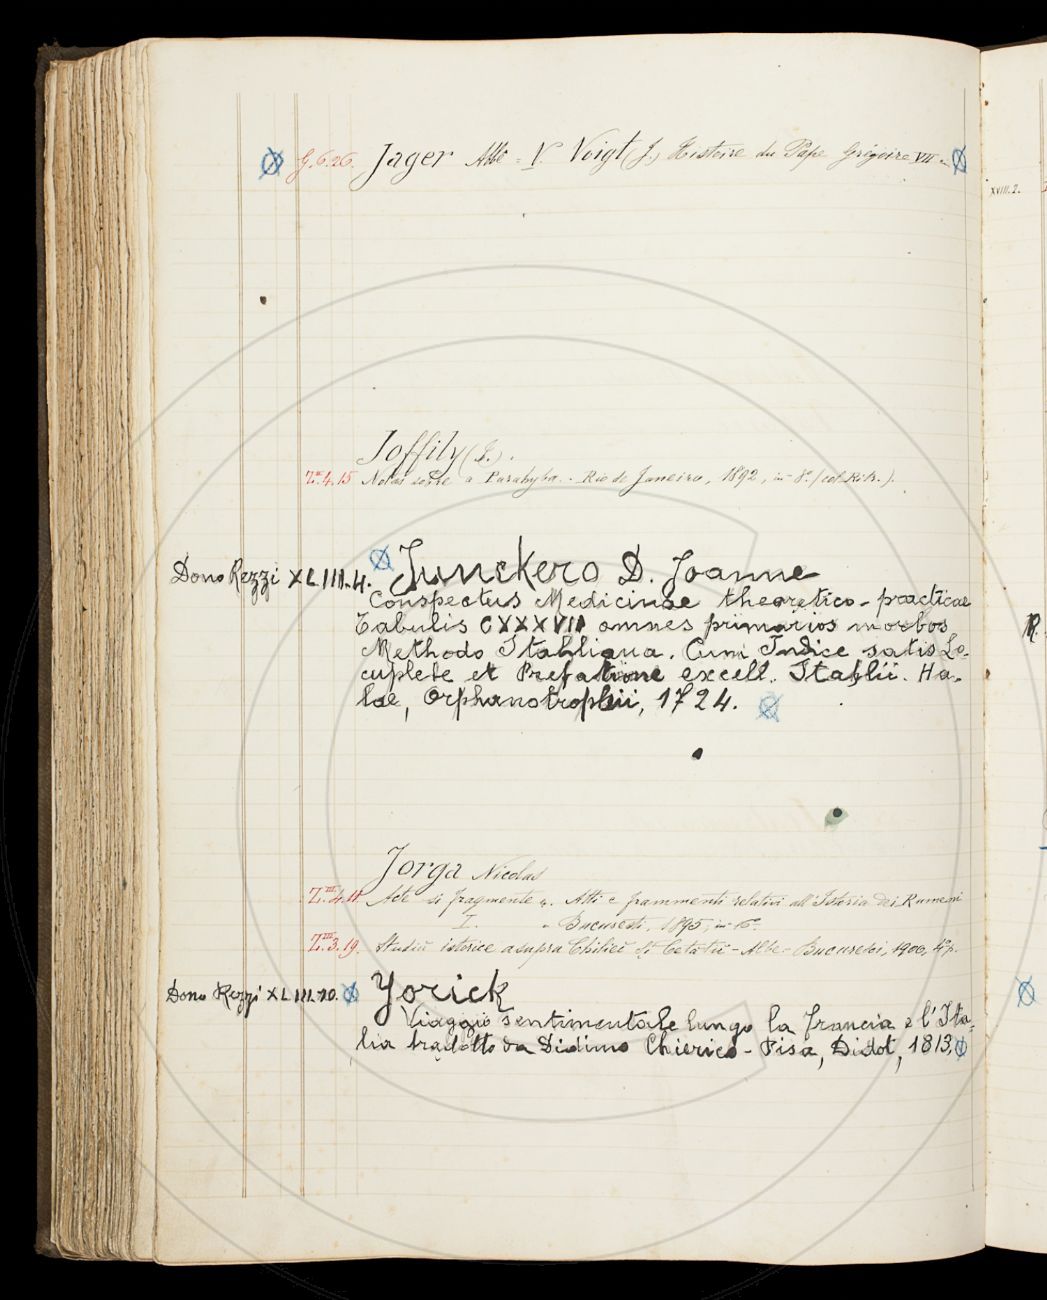 G. 6. 26. Jager Abbé = V. Voigt (J.) Histoire du Pape Grégoire VII -
XVIII. 2.
Joffily (I.).
Z.III.4.15 Notas sobre a Parahyba. - Rio de Janeiro, 1892, in-8º. (col. Ritr.).
Dono Rezzi XLIII.4. Junckero D. Joanne
Conspectus Medicinae theoretico-practicae
Tabulis CXXXVII omnes primarios morbos
Methodo Stahliana. Cum Indice satis Lo-
cuplete et Prefatione excell. Stahlii. Ha-
lae, Orphanotrophii, 1724.
R.
Jorga Nicolas
Z.III.4.11. Acte si fragmente . Atti e frammenti relativi all'Istoria dei Rumeni
I. - Bucuresti, 1895, in-8º
Z.III.3.19. Studii istorice asupra Chiliei si Cetatii-Albe - Bucuresci, 1900, 4º p.
Dono Rezzi XLIII.10. Yorick
Viaggio sentimentale lungo la Francia e l'Ita-
lia tradotto da Didimo Chierico - Pisa, Didot, 1813.